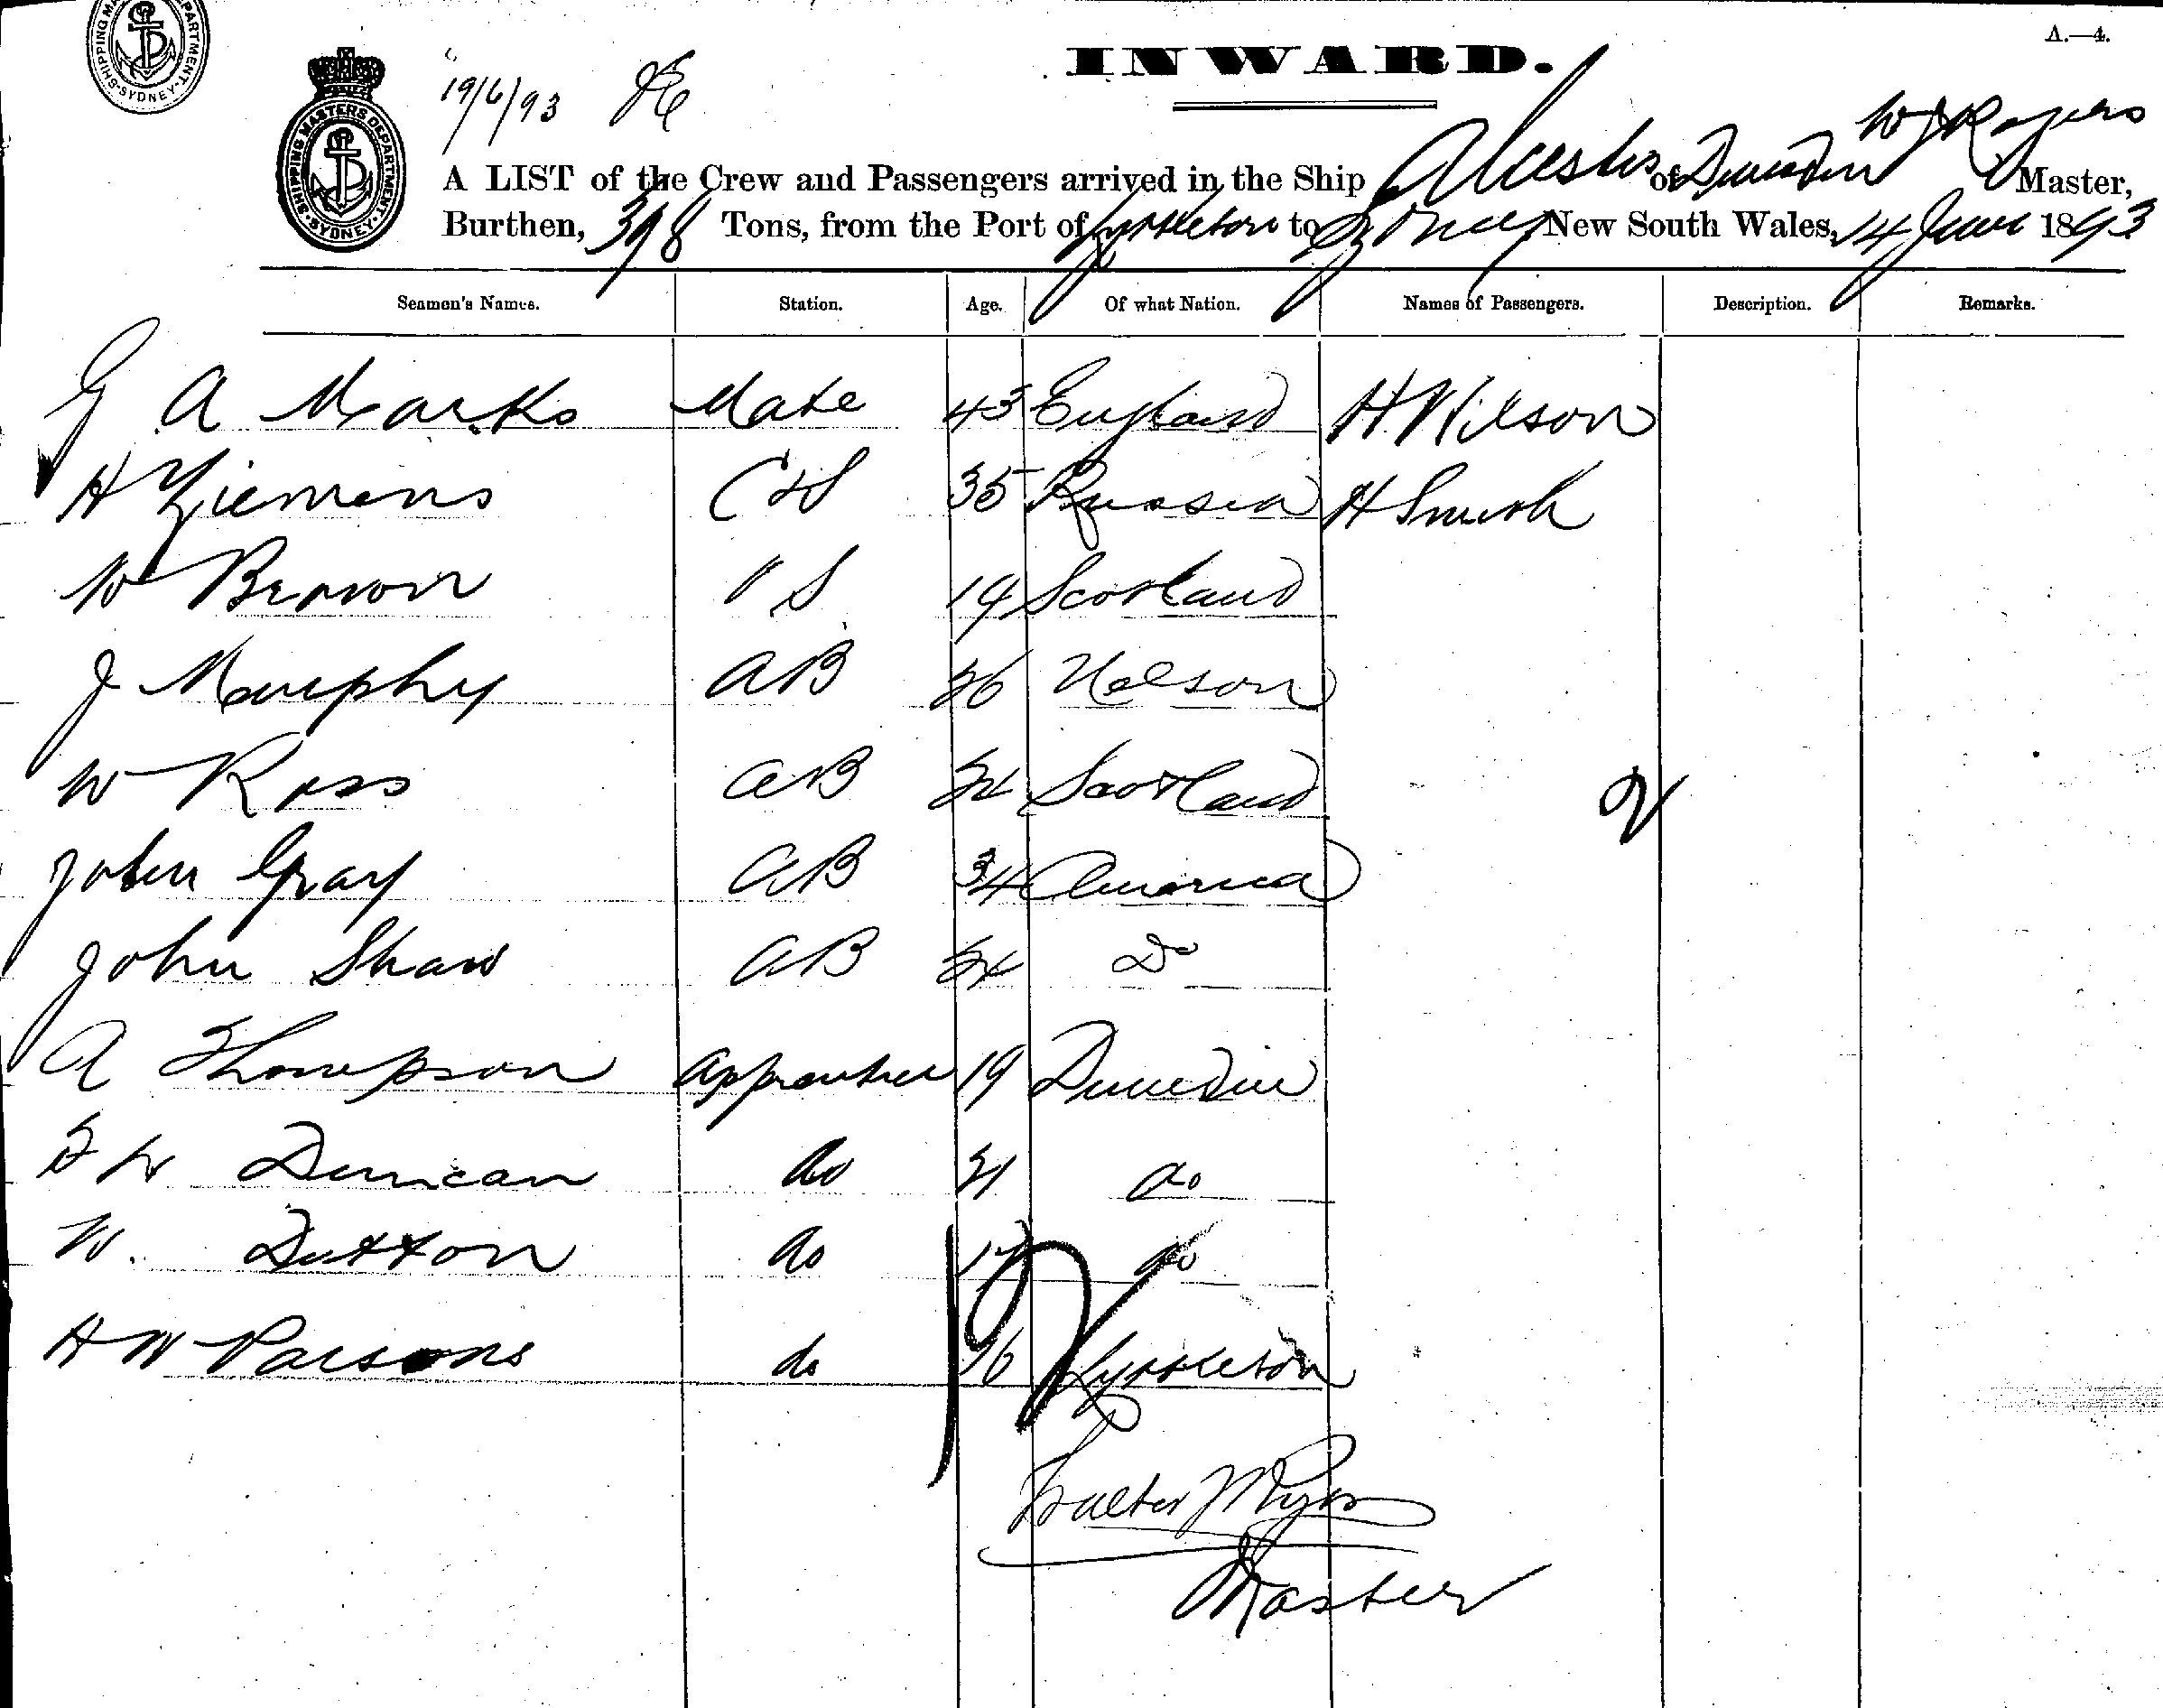 A.—4.
SHIPPING MASTERS DEPARTMENT SYDNEY
INWARD.
SHIPPING MASTERS DEPARTMENT SYDNEY
19/6/93
W J Rogers
A LIST of the Crew and Passengers arrived in the Ship Alcestis of Dunedin Master,
Burthen, 398 Tons, from the Port of Lyttleton to Sydney New South Wales, 14 June 1893
Seamen's Names. Station. Age. Of what Nation. Names of Passengers. Description. Remarks.
G A Marks Mate 43 England H Wilson
H Ziemens C & S 35 Russia H Smith
W Brown S 19 Scotland
J Murphy AB 26 Nelson
W Ross AB 24 Scotland
2
John Gray AB 34 America
John Shaw AB 24 Do
A Thompson Apprentice 19 Dunedin
Duncan do 21 do
W. Dutton do 17 do
12
H W Parsons do 16 Lyttleton
Walter
Master